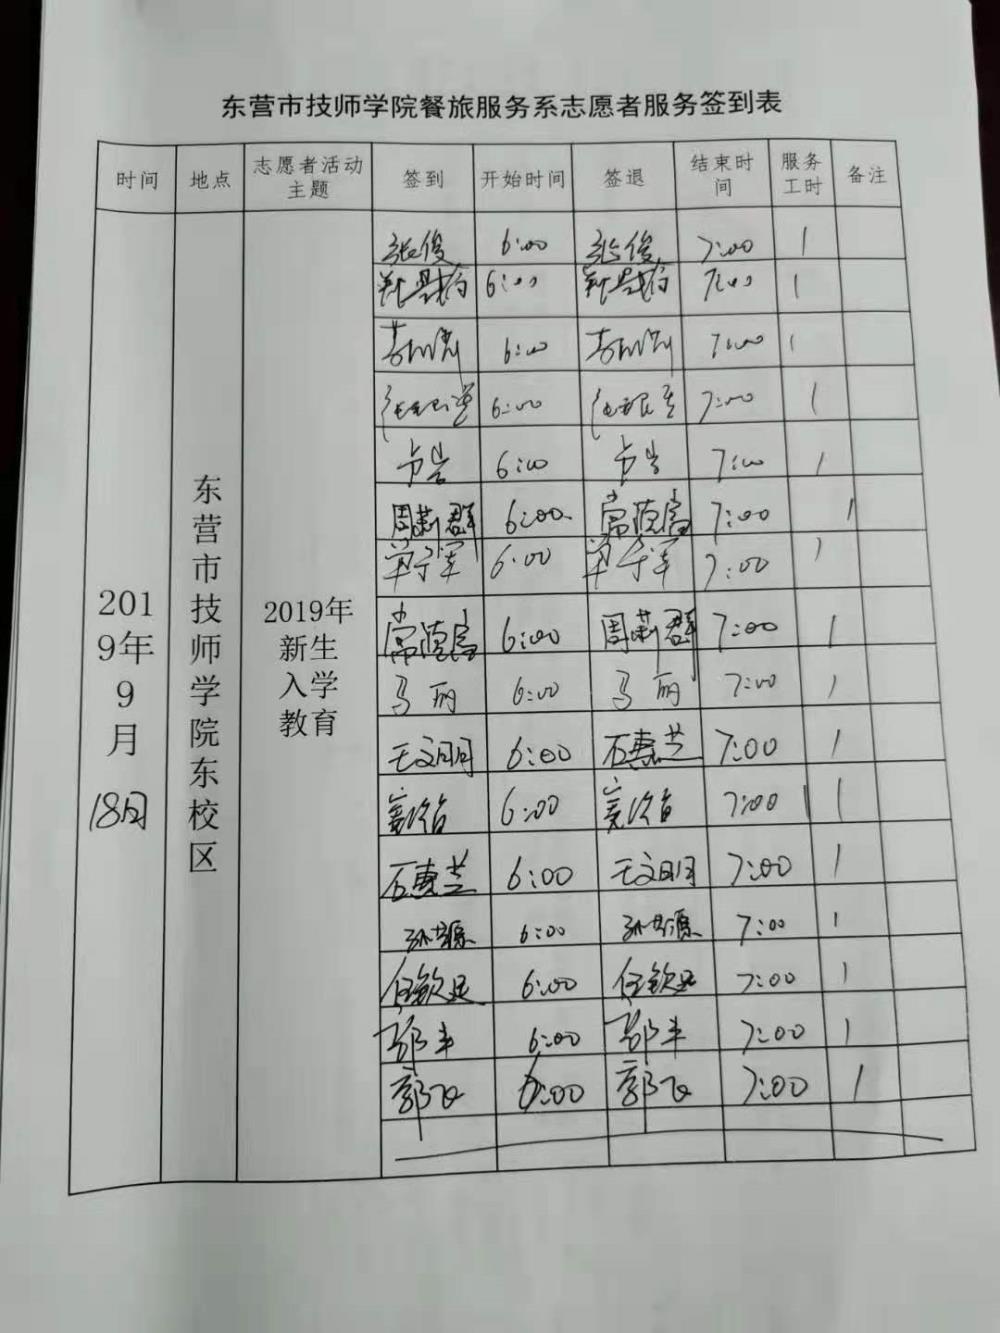 东营市技师学院餐旅服务系志愿者服务签到表
时间 地点 志愿者活动主题 签到 开始时间 签退 结束时间 服务工时 备注
2019年9月18日 东营市技师学院东校区 2019年新生入学教育
张俊 6:00 张俊 7:00 1
6:00 7:00 1
6:00 7:00 1
6:00 7:00 1
6:00 7:00 1
周莉群 6:00 常德富 7:00 1
6:00 7:00 1
常德富 6:00 周莉群 7:00 1
马丽 6:00 马丽 7:00 1
王文明 6:00 石惠芝 7:00 1
6:00 7:00 1
石惠芝 6:00 王文明 7:00 1
6:00 7:00 1
任钦 6:00 任钦 7:00 1
6:00 7:00 1
郭飞 6:00 郭飞 7:00 1